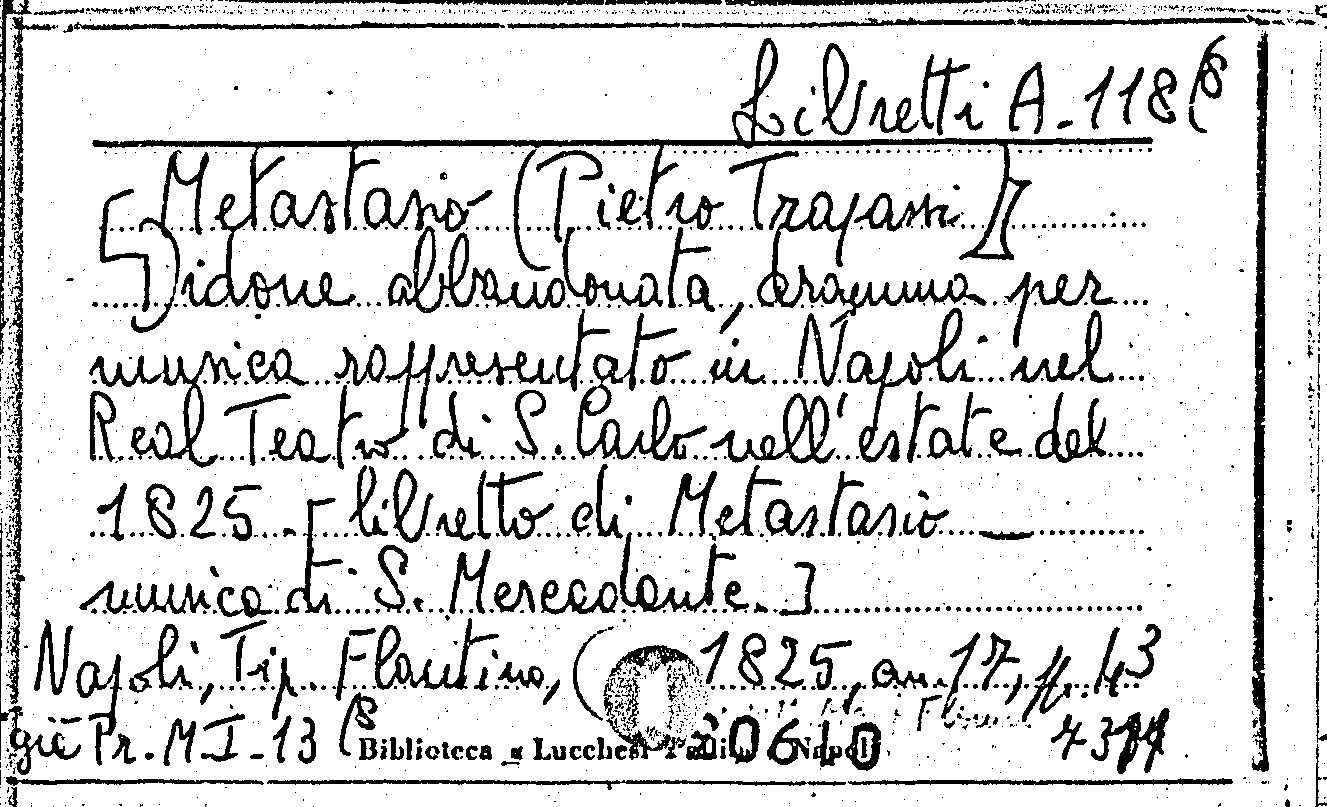 Libretti A-118(8
[Metastasio (Pietro Trapassi)]
Didone abbandonata, dramma per
musica rappresentato in Napoli nel
Real Teatro di S. Carlo nell'estate del
1825.-[libretto di Metastasio —
musica di S. Mercadante.]
Napoli, Tip. Flautina, (1825, in 17, pp. 43
già Pr. M I-13 (8 Biblioteca Lucchesi Palli Napoli